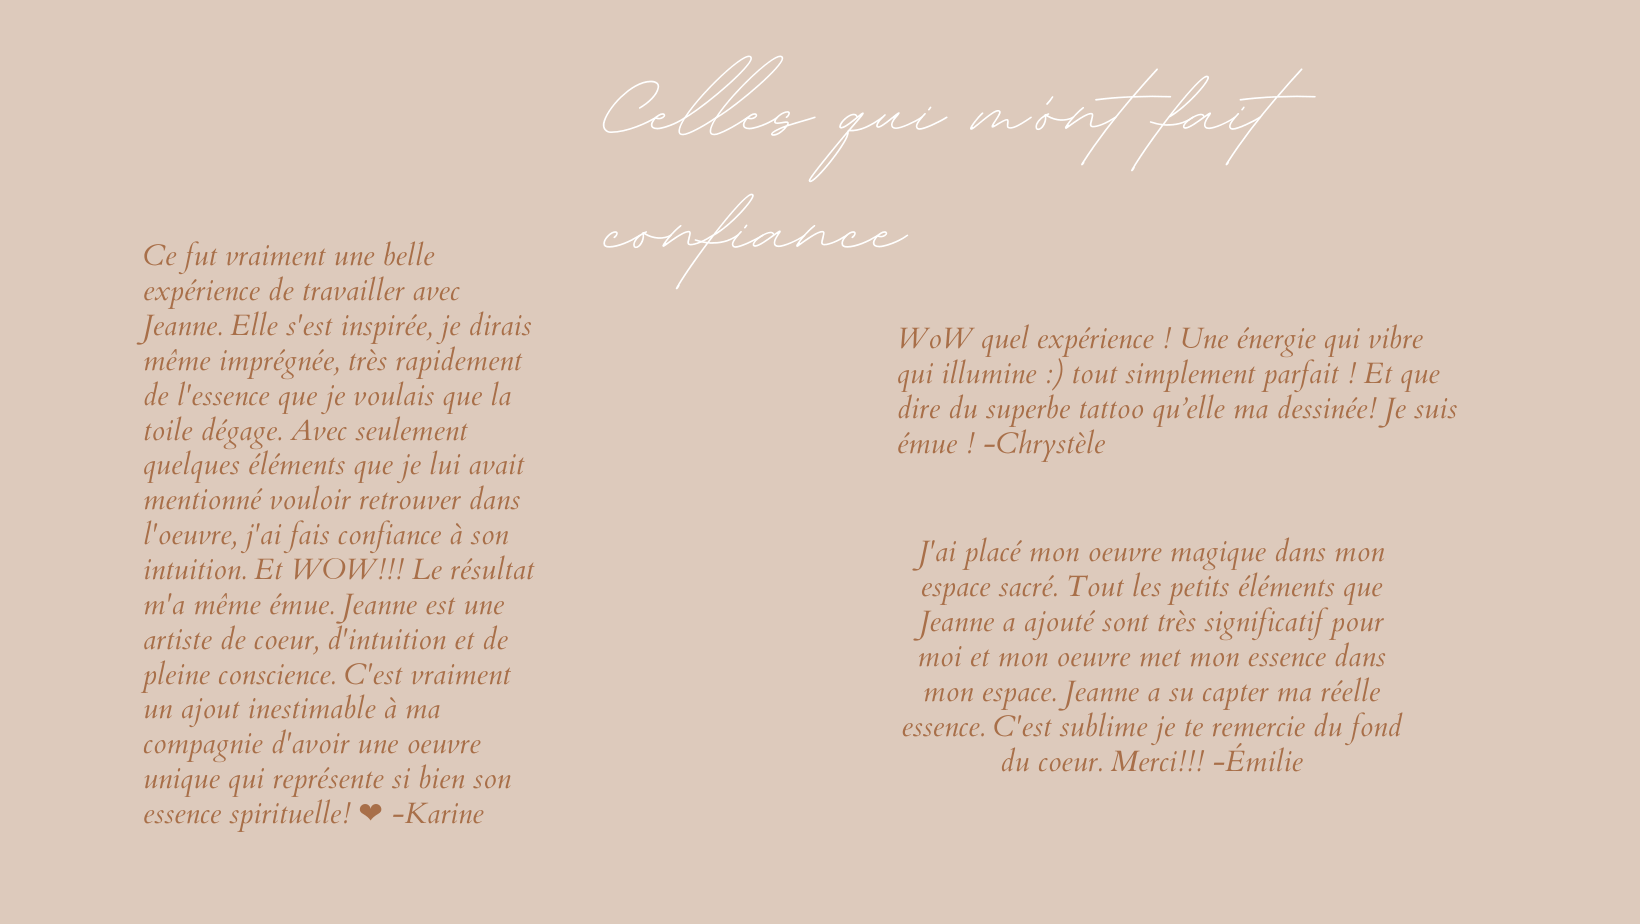 Celles qui m'ont fait
confiance
Ce fut vraiment une belle
expérience de travailler avec
Jeanne. Elle s'est inspirée, je dirais
même imprégnée, très rapidement
de l'essence que je voulais que la
toile dégage. Avec seulement
quelques éléments que je lui avait
mentionné vouloir retrouver dans
l'oeuvre, j'ai fais confiance à son
intuition. Et WOW!!! Le résultat
m'a même émue. Jeanne est une
artiste de coeur, d'intuition et de
pleine conscience. C'est vraiment
un ajout inestimable à ma
compagnie d'avoir une oeuvre
unique qui représente si bien son
essence spirituelle! ❤ -Karine
WoW quel expérience ! Une énergie qui vibre
qui illumine :) tout simplement parfait ! Et que
dire du superbe tattoo qu’elle ma dessinée! Je suis
émue ! -Chrystèle
J'ai placé mon oeuvre magique dans mon
espace sacré. Tout les petits éléments que
Jeanne a ajouté sont très significatif pour
moi et mon oeuvre met mon essence dans
mon espace. Jeanne a su capter ma réelle
essence. C'est sublime je te remercie du fond
du coeur. Merci!!! -Émilie